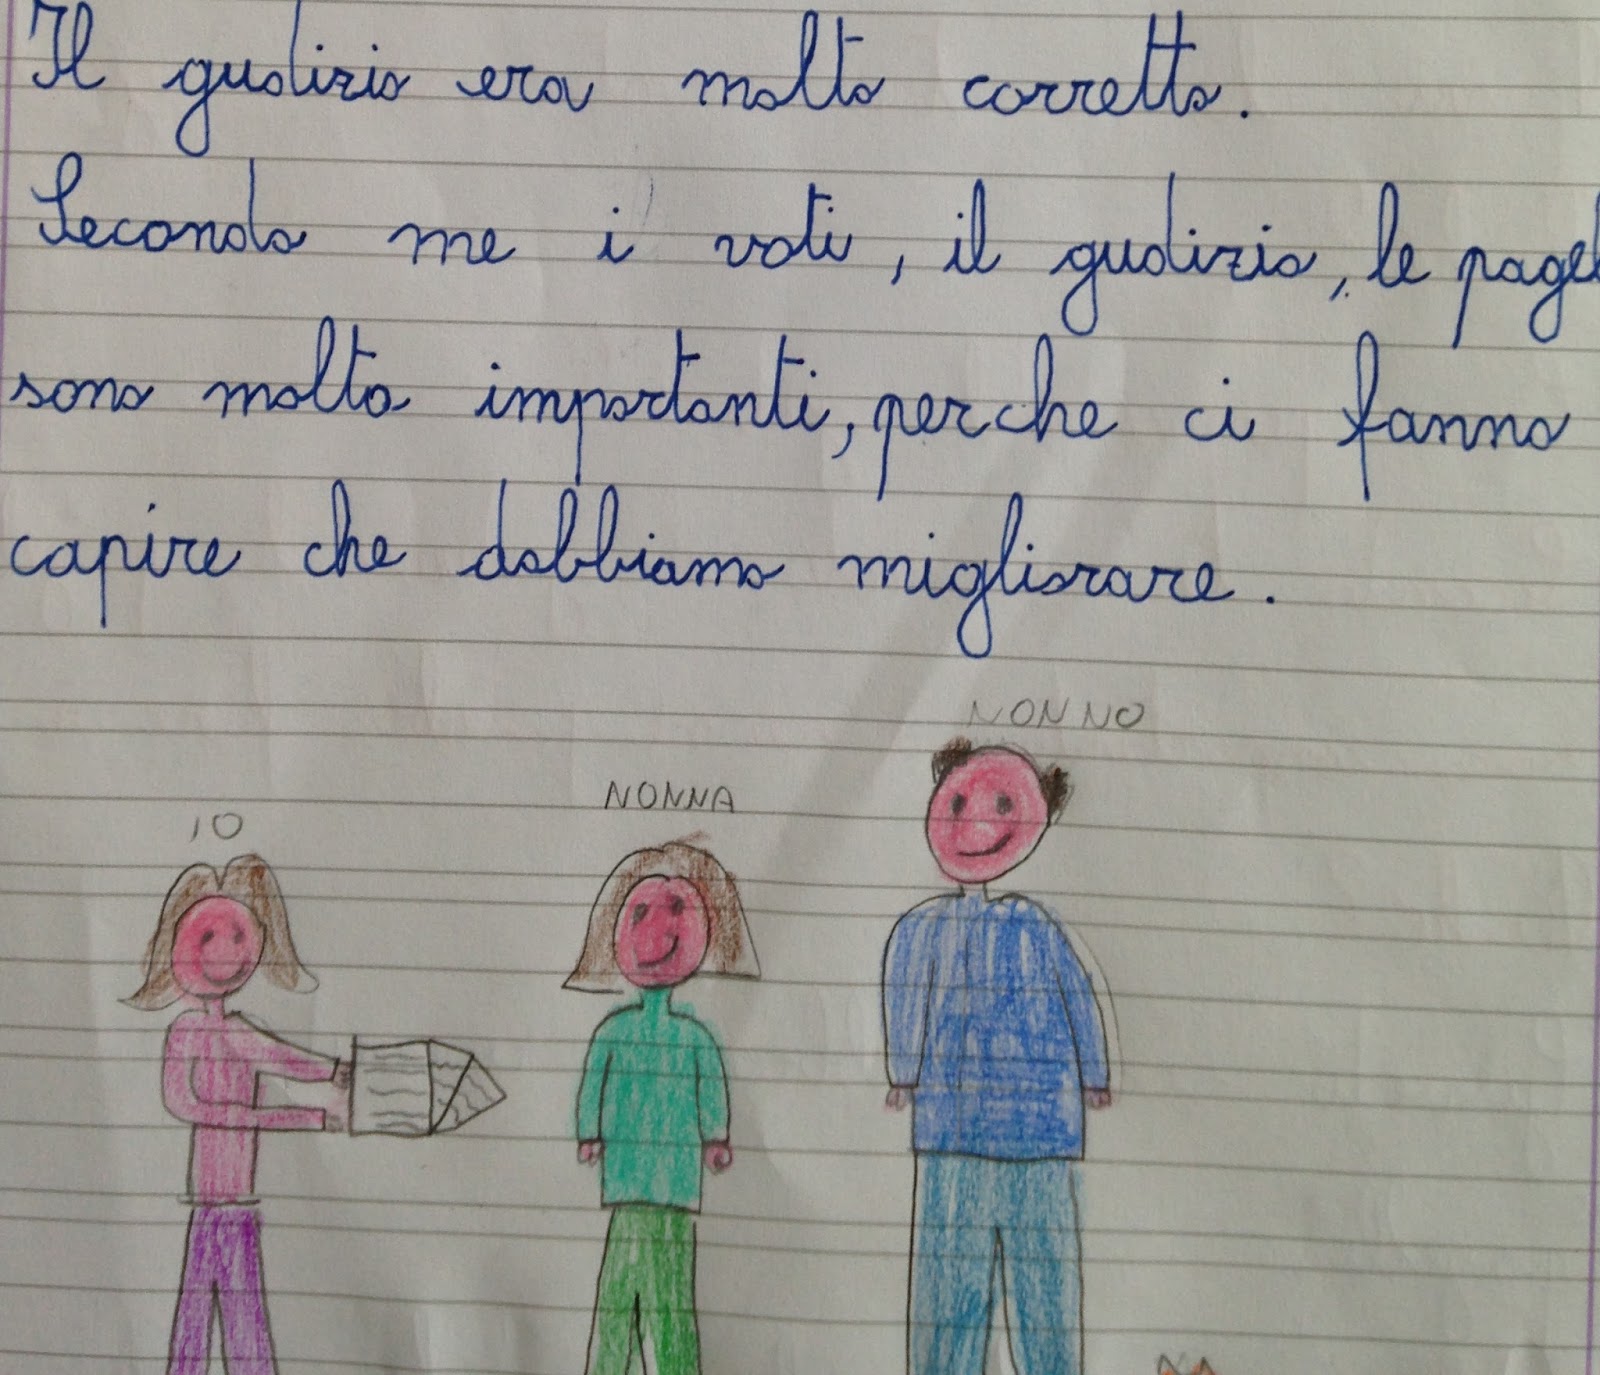 Il gudizio era molto corretto.
Secondo me i voti, il gudizio, le pagel
sono molto importanti, perche ci fanno
capire che dobbiamo migliorare.
NONNO
NONNA
IO